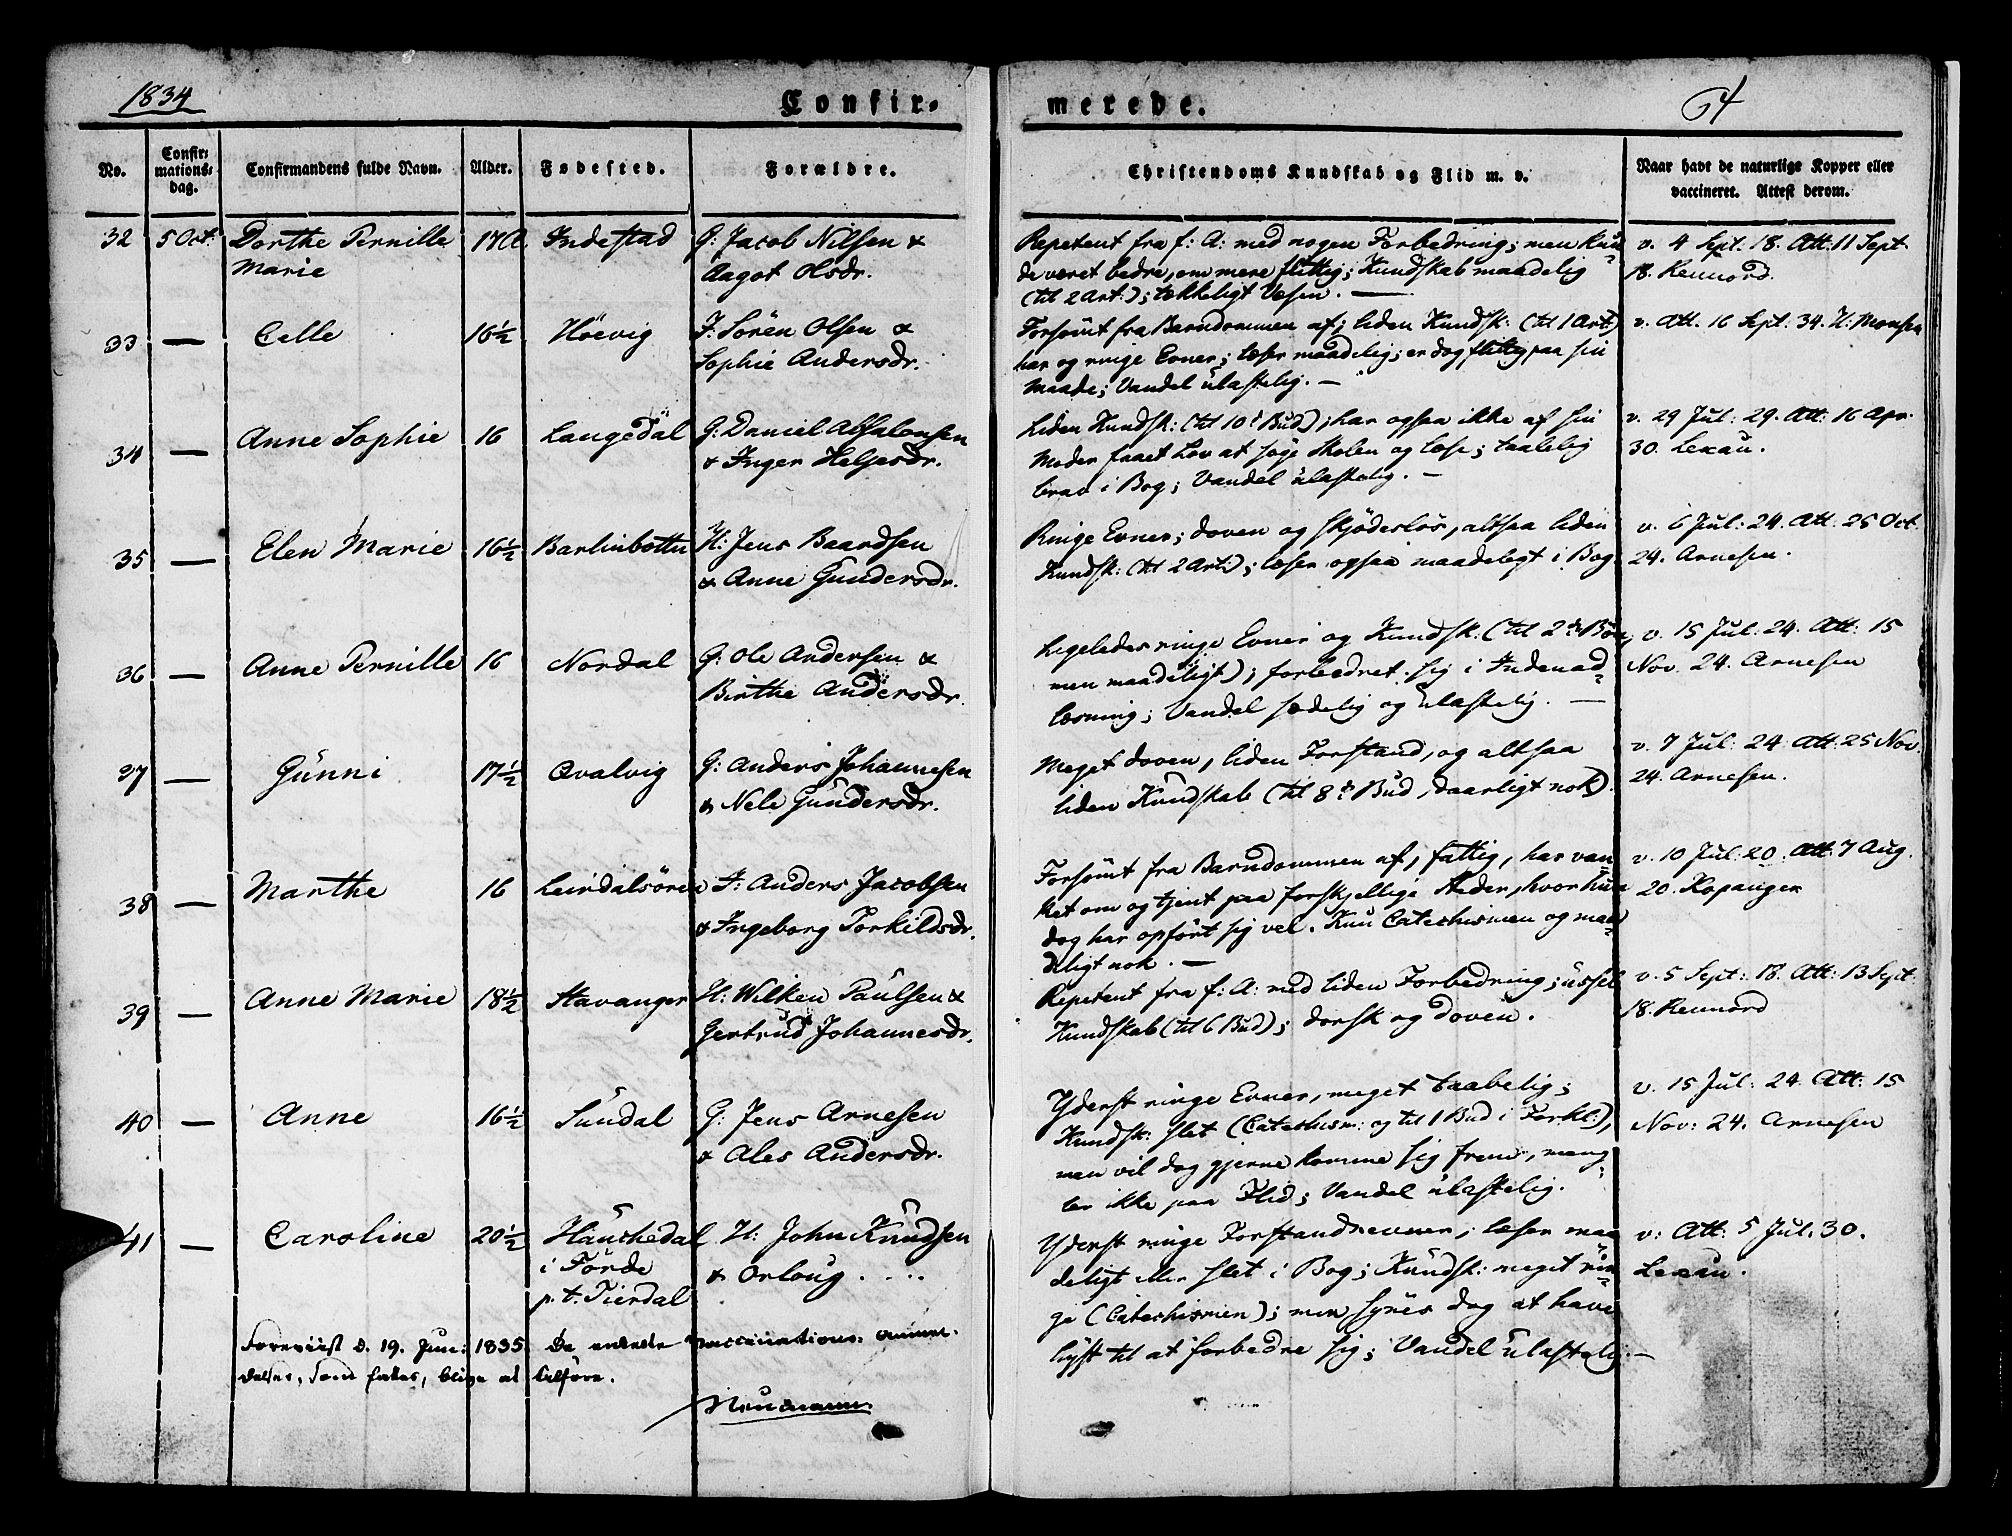 1834
Confir-
merede.
64
No.
Confir-
mations-
dag.
Confirmandens fulde Navn.
Alder.
Fødested.
Forældre.
Christendoms Kundskab og Flid m. v.
Naar havt de naturlige Kopper eller
vaccineret. Attest derom.
32 5 Oct: Dorthe Pernille 17 A Indestad G: Jacob Nilsen &
Marie Aagot Olsdr.
Repetent fra f: A: med nogen Forbedring; men kun-
de været bedre, om mere flittig; Kundskab maadelig
(til 2 Art:); tækkeligt Væsen. —
v. 4 Sept. 18. Att: 11 Sept
18. Rennord.
33 — Celle 16½ Höevig I: Sören Olsen &
Sophie Andersdr.
Forsömt fra Barndommen af; liden Kundsk: (til 1 Art)
har og ringe Evner; læser maadelig; er dog flittig paa sin
Maade; Vandel ulastelig. —
v. Att. 16 Sept. 34. H: Monsen
34 — Anne Sophie 16 Langedal G: Daniel Absalonsen
& Inger Helgesdr.
Liden Kundsk: (til 10d Bud); har ogsaa ikke af sin
Moder faaet Lov at söge Skolen og læse; taalelig
brav i Bog; Vandel ulastelig. —
v. 29 Jul: 29. Att: 16 Apr.
30. Lexau.
35 — Elen Marie 16½ Barlinbottn H: Jens Baardsen
& Anne Gundersdr.
Ringe Evner; doven og skjödeslös, altsaa liden
Kundsk: (til 2 Art:); læser ogsaa maadeligt i Bog.
v. 6 Jul: 24. Att: 25 Oct.
24. Arnesen.
36 — Anne Pernille 16 Nordal G: Ole Andersen &
Birthe Andersdr.
Ligeledes ringe Evner og Kundsk: (til 2de Bön,
men maadeligt); forbedret sig i Indenad-
læsning; Vandel sædelig og ulastelig. —
v. 15 Jul: 24. Att: 15
Nov. 24. Arnesen
37 — Gunni 17½ Qvalvig G: Anders Johannesen
& Nele Gundersdr.
Meget doven, liden Forstand, og altsaa
liden Kundskab (til 8d Bud, daarligt nok).
v. 7 Jul: 24 Att: 25 Nov.
24. Arnesen.
38 — Marthe 16 Leirdalsören I: Anders Jacobsen
& Ingeborg Torkildsdr.
Forsömt fra Barndommen af, fattig, har van-
ket om og tjent paa forskjellige Steder, hvor hun
dog har opfört sig vel. Kun Catechismen og maa-
deligt nok. —
v. 10 Jul: 20. Att: 7 Aug.
20. Kopanger
39 — Anne Marie 18½ Stavanger H: Wilken Paulsen &
Gertrud Johannesdr.
Repetent fra f: A: med liden Forbedring; ussel
Kundskab (til 6 Bud); dorsk og doven.
v. 5 Sept: 18. Att: 13 Sept:
18. Rennord
40 — Anne 16½ Sundal G: Jens Arnesen
& Ales Andersdr.
Yderst ringe Evner, meget taabelig;
Kundsk: slet (Catechism: og til 1 Bud i Forkl:),
men vil dog gjerne komme sig frem, mang-
ler ikke paa Flid; Vandel ulastelig.
v. 15 Jul: 24. Att: 15
Nov: 24. Arnesen
41 — Caroline 20½ Hauchedal H: John Knudsen
i Förde & Orloug . . . .
p. t. Tierdal
Yderst ringe Forstandsevner; læser maa
deligt eller slet i Bog; Kundsk: meget rin-
ge (Catechismen); men synes dog at have
lyst til at forbedre sig; Vandel ulastelig. —
v: Att: 5 Jul. 30.
Lexau.
Foreviist d. 19. Juni 1835. De vaccinations-anmel-
delser, som fattes, blive at tilföre.
Neumann.